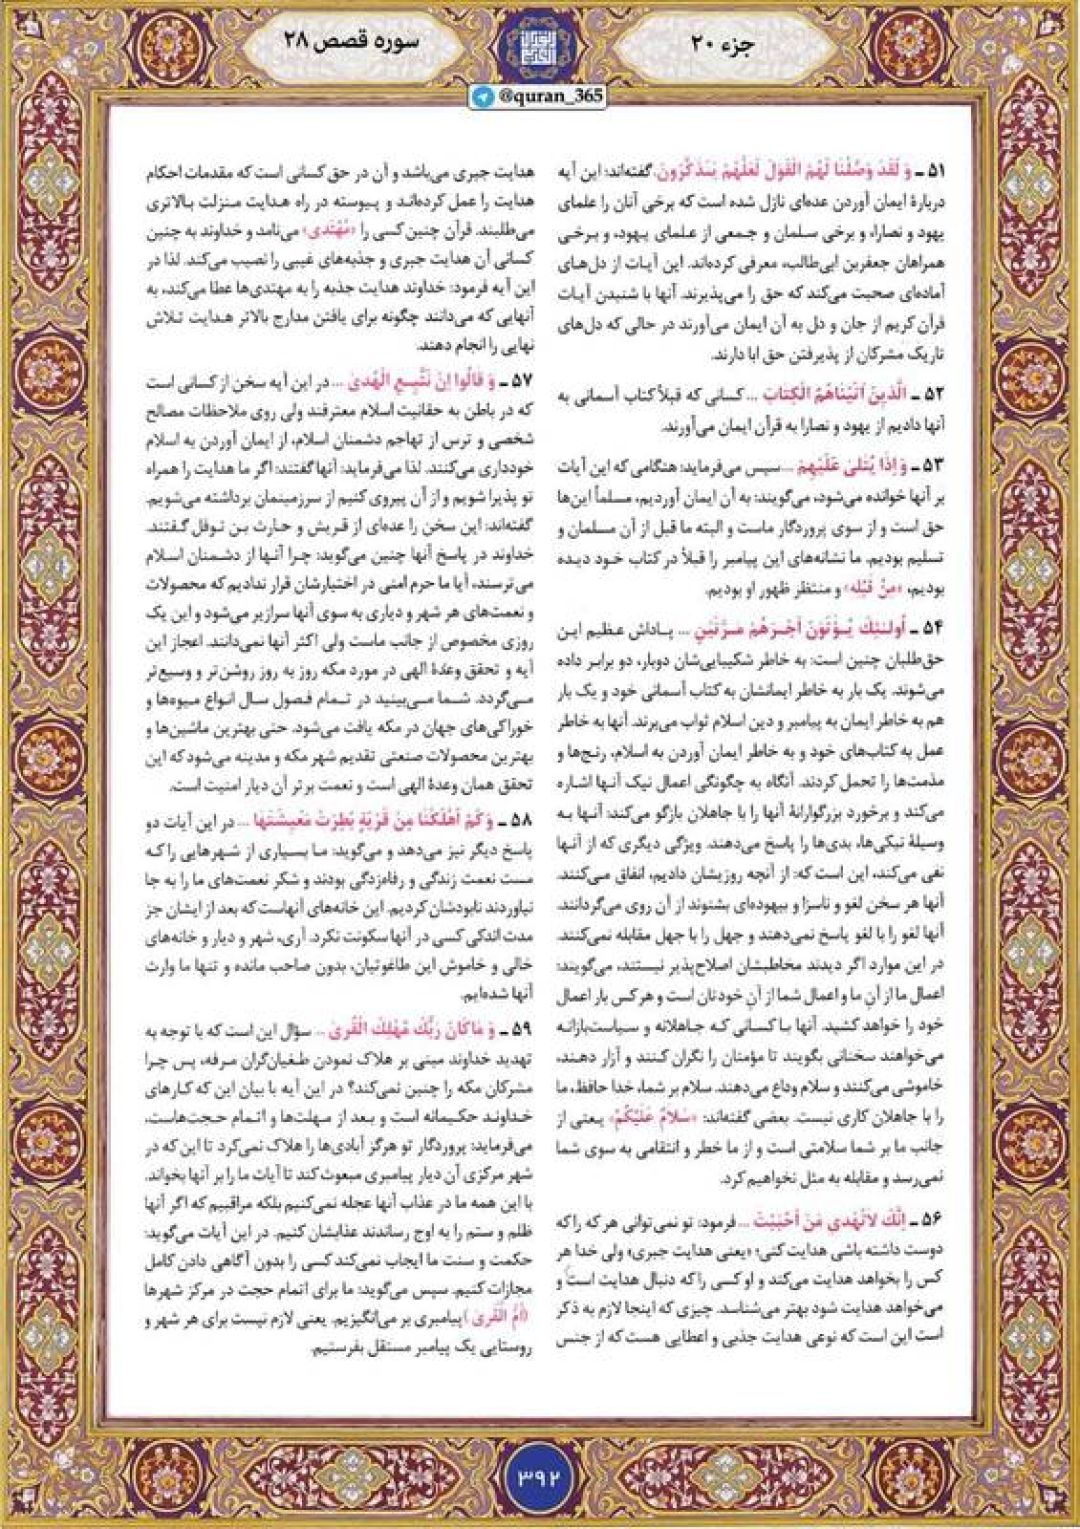 جزء ۲۰
سوره قصص ۲۸
@quran_365
۵۱ ـ وَ لَقَدْ وَصَّلْنَا لَهُمُ الْقَوْلَ لَعَلَّهُمْ يَتَذَكَّرُونَ. گفته‌اند: این آیه
دربارهٔ ایمان آوردن عده‌ای نازل شده است که برخی آنان را علمای
یهود و نصارا، و برخی سلمان و جمعی از علمای یهود، و برخی
همراهان جعفربن ابی‌طالب، معرفی کرده‌اند. این آیات از دل‌های
آماده‌ای صحبت می‌کند که حق را می‌پذیرند. آنها با شنیدن آیات
قرآن کریم از جان و دل به آن ایمان می‌آورند در حالی که دل‌های
تاریک مشرکان از پذیرفتن حق ابا دارند.
۵۲ ـ الَّذِينَ آتَيْنَاهُمُ الْكِتَابَ ... کسانی که قبلاً کتاب آسمانی به
آنها دادیم از یهود و نصارا به قرآن ایمان می‌آورند.
۵۳ ـ وَ إِذَا يُتْلَى عَلَيْهِمْ ... سپس می‌فرماید: هنگامی که این آیات
بر آنها خوانده می‌شود، می‌گویند: به آن ایمان آوردیم، مسلماً این‌ها
حق است و از سوی پروردگار ماست و البته ما قبل از آن مسلمان و
تسلیم بودیم. ما نشانه‌های این پیامبر را قبلاً در کتاب خود دیده
بودیم، «مِنْ قَبْلِه» و منتظر ظهور او بودیم.
۵۴ ـ أُولٰئِكَ يُؤْتَوْنَ أَجْرَهُمْ مَرَّتَيْنِ ... پاداش عظیم این
حق‌طلبان چنین است: به خاطر شکیبایی‌شان دوبار، دو برابر داده
می‌شوند. یک بار به خاطر ایمانشان به کتاب آسمانی خود و یک بار
هم به خاطر ایمان به پیامبر و دین اسلام ثواب می‌برند. آنها به خاطر
عمل به کتاب‌های خود و به خاطر ایمان آوردن به اسلام، رنج‌ها و
مذمت‌ها را تحمل کردند. آنگاه به چگونگی اعمال نیک آنها اشاره
می‌کند و برخورد بزرگوارانهٔ آنها را با جاهلان بازگو می‌کند: آنها به
وسیلهٔ نیکی‌ها، بدی‌ها را پاسخ می‌دهند. ویژگی دیگری که از آنها
نفی می‌کند، این است که: از آنچه روزیشان دادیم، انفاق می‌کنند.
آنها هر سخن لغو و ناسزا و بیهوده‌ای بشنوند از آن روی می‌گردانند.
آنها لغو را با لغو پاسخ نمی‌دهند و جهل را با جهل مقابله نمی‌کنند.
در این موارد اگر دیدند مخاطبشان اصلاح‌پذیر نیستند، می‌گویند:
اعمال ما از آنِ ما و اعمال شما از آنِ خودتان است و هرکس بار اعمال
خود را خواهد کشید. آنها با کسانی که جاهلانه و سیاست‌بازانه
می‌خواهند سخنانی بگویند تا مؤمنان را نگران کنند و آزار دهند،
خاموشی می‌کنند و سلام وداع می‌دهند. سلام بر شما، خدا حافظ، ما
را با جاهلان کاری نیست. بعضی گفته‌اند: «سَلَامٌ عَلَيْكُمْ» یعنی از
جانب ما بر شما سلامتی است و از ما خطر و انتقامی به سوی شما
نمی‌رسد و مقابله به مثل نخواهیم کرد.
۵۶ ـ إِنَّكَ لَاتَهْدِي مَنْ أَحْبَبْتَ ... فرمود: تو نمی‌توانی هر که را که
دوست داشته باشی هدایت کنی؛ «یعنی هدایت جبری» ولی خدا هر
کس را بخواهد هدایت می‌کند و او کسی را که دنبال هدایت است و
می‌خواهد هدایت شود بهتر می‌شناسد. چیزی که اینجا لازم به ذکر
است این است که نوعی هدایت جذبی و اعطایی هست که از جنس
هدایت جبری می‌باشد و آن در حق کسانی است که مقدمات احکام
هدایت را عمل کرده‌اند و پیوسته در راه هدایت منزلت بالاتری
می‌طلبند. قرآن چنین کسی را «مُهْتَدِی» می‌نامد و خداوند به چنین
کسانی آن هدایت جبری و جذبه‌های غیبی را نصیب می‌کند. لذا در
این آیه فرمود: خداوند هدایت جذبه را به مهتدی‌ها عطا می‌کند، به
آنهایی که می‌دانند چگونه برای یافتن مدارج بالاتر هدایت تلاش
نهایی را انجام دهند.
۵۷ ـ وَ قَالُوا إِنْ نَتَّبِعِ الْهُدىٰ ... در این آیه سخن از کسانی است
که در باطن به حقانیت اسلام معترفند ولی روی ملاحظات مصالح
شخصی و ترس از تهاجم دشمنان اسلام، از ایمان آوردن به اسلام
خودداری می‌کنند. لذا می‌فرماید: آنها گفتند: اگر ما هدایت را همراه
تو پذیرا شویم و از آن پیروی کنیم از سرزمینمان برداشته می‌شویم.
گفته‌اند: این سخن را عده‌ای از قریش و حارث بن نوفل گفتند.
خداوند در پاسخ آنها چنین می‌گوید: چرا آنها از دشمنان اسلام
می‌ترسند، آیا ما حرم امنی در اختیارشان قرار ندادیم که محصولات
و نعمت‌های هر شهر و دیاری به سوی آنها سرازیر می‌شود و این یک
روزی مخصوص از جانب ماست ولی اکثر آنها نمی‌دانند. اعجاز این
آیه و تحقق وعدهٔ الهی در مورد مکه روز به روز روشن‌تر و وسیع‌تر
می‌گردد. شما می‌بینید در تمام فصول سال انواع میوه‌ها و
خوراکی‌های جهان در مکه یافت می‌شود. حتی بهترین ماشین‌ها و
بهترین محصولات صنعتی تقدیم شهر مکه و مدینه می‌شود که این
تحقق همان وعدهٔ الهی است و نعمت برتر آن دیار امنیت است.
۵۸ ـ وَ كَمْ أَهْلَكْنَا مِنْ قَرْيَةٍ بَطِرَتْ مَعِيشَتَهَا ... در این آیات دو
پاسخ دیگر نیز می‌دهد و می‌گوید: ما بسیاری از شهرهایی را که
مست نعمت زندگی و رفاه‌زدگی بودند و شکر نعمت‌های ما را به جا
نیاوردند نابودشان کردیم. این خانه‌های آنهاست که بعد از ایشان جز
مدت اندکی کسی در آنها سکونت نکرد. آری، شهر و دیار و خانه‌های
خالی و خاموش این طاغوتیان، بدون صاحب مانده و تنها ما وارث
آنها شده‌ایم.
۵۹ ـ وَ مَا كَانَ رَبُّكَ مُهْلِكَ الْقُرىٰ ... سؤال این است که با توجه به
تهدید خداوند مبنی بر هلاک نمودن طغیان‌گران مرفه، پس چرا
مشرکان مکه را چنین نمی‌کند؟ در این آیه با بیان این که کارهای
خداوند حکیمانه است و بعد از مهلت‌ها و اتمام حجت‌هاست،
می‌فرماید: پروردگار تو هرگز آبادی‌ها را هلاک نمی‌کرد تا این که در
شهر مرکزی آن دیار پیامبری مبعوث کند تا آیات ما را بر آنها بخواند.
با این همه ما در عذاب آنها عجله نمی‌کنیم بلکه مراقبیم که اگر آنها
ظلم و ستم را به اوج رساندند عذابشان کنیم. در این آیات می‌گوید:
حکمت و سنت ما ایجاب نمی‌کند کسی را بدون آگاهی دادن کامل
مجازات کنیم. سپس می‌گوید: ما برای اتمام حجت در مرکز شهرها
(أُمُّ الْقُرىٰ) پیامبری بر می‌انگیزیم. یعنی لازم نیست برای هر شهر و
روستایی یک پیامبر مستقل بفرستیم.
۳۹۲